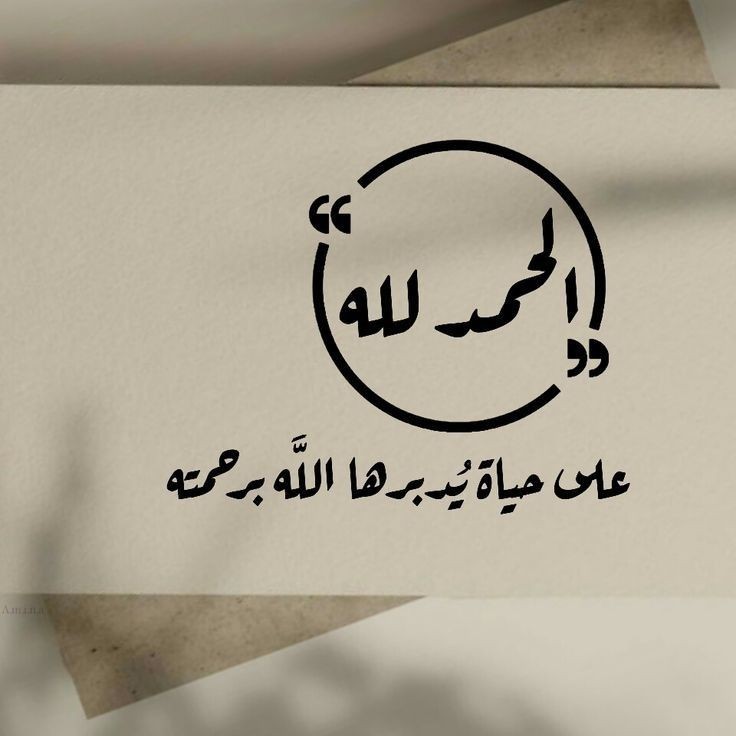 الحمد لله
على حياة يُدبرها اللَّه برحمته
Amina